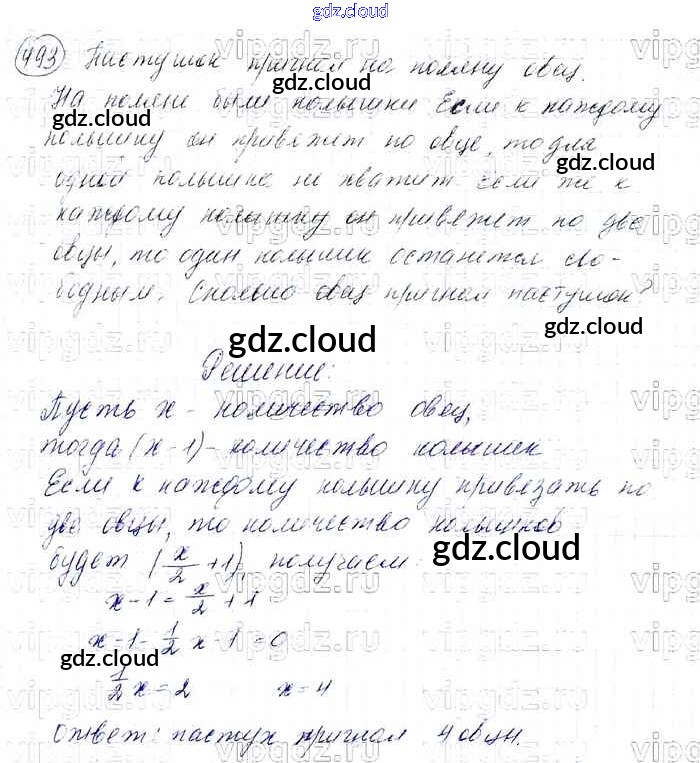 gdz.cloud
493 Пастушок пригнал на поляну овец.
На поляне были колышки Если к каждому
колышку он привяжет по овце, то для
одной колышка не хватит если же к
каждому колышку он привяжет по две
овцы, то один колышек останется сво-
бодным. Сколько овец пригнал пастушок?
Решение:
Пусть х - количество овец,
тогда (х-1) - количество колышек
Если к каждому колышку привязать по
две овцы, то количество колышков
будет (x/2 + 1), получаем:
x - 1 = x/2 + 1
x - 1 - 1/2 x - 1 = 0
1/2 x = 2 x = 4
Ответ: пастух пригнал 4 овцы.